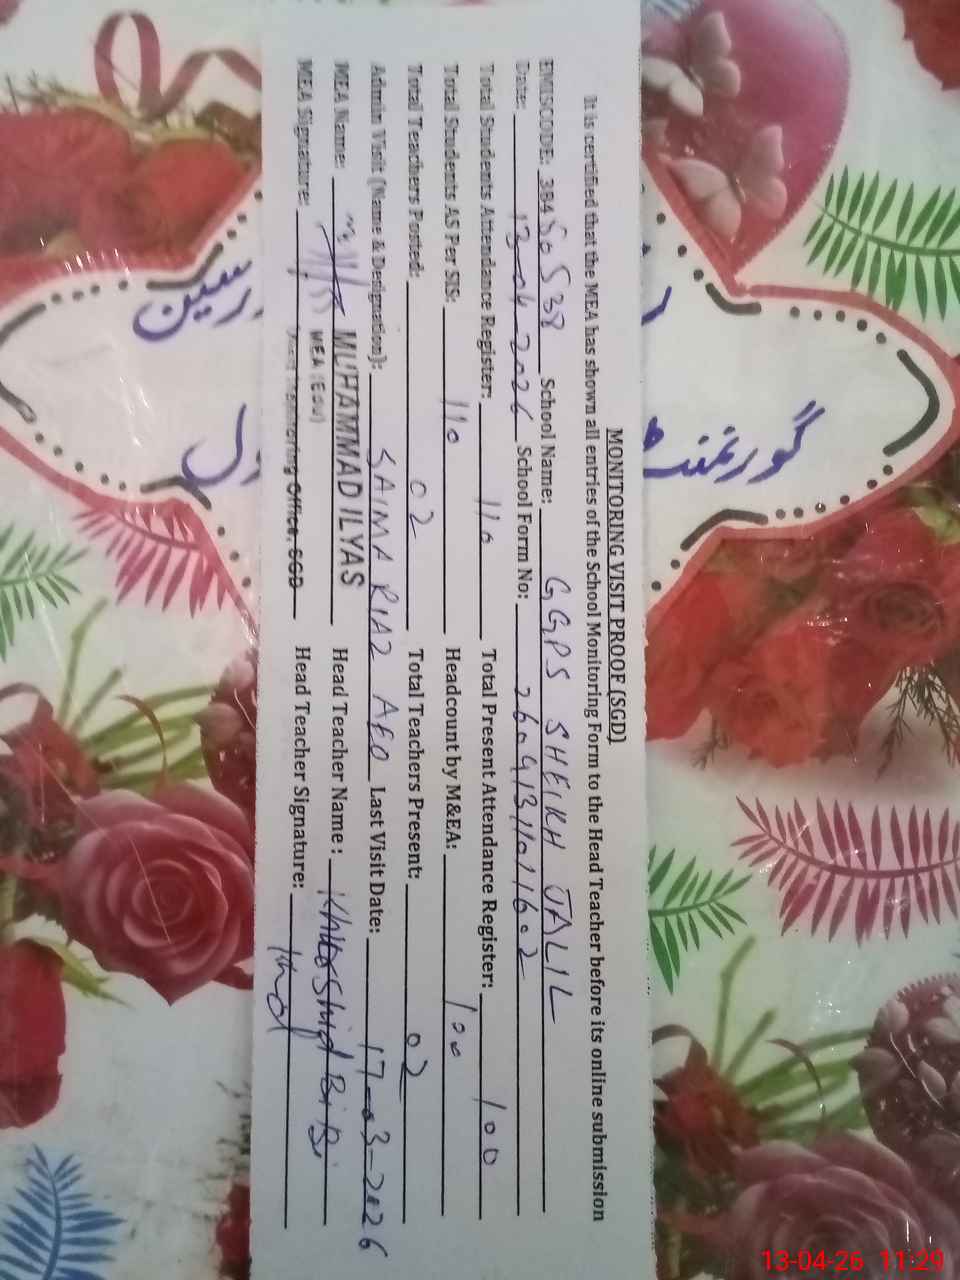 MONITORING VISIT PROOF (SGD)
It is certified that the MEA has shown all entries of the School Monitoring Form to the Head Teacher before its online submission
EMISCODE: 38450538 School Name: GGPS SHEIKH JALIL
Date: 13-04-2026 School Form No:
Total Students Attendance Register: 110 Total Present Attendance Register: 100
Total Students AS Per SIS: 110 Headcount by M&EA: 100
Total Teachers Posted: 02 Total Teachers Present: 02
Admin Visit (Name & Designation): SAIMA RIAZ AEO Last Visit Date: 17-03-2026
MEA Name: MUHAMMAD ILYAS Head Teacher Name: Khurshid Bi Bi
MEA (Edu)
MEA Signature: Monitoring Office, SGD Head Teacher Signature:
گورنمنٹ
13-04-26 11:29